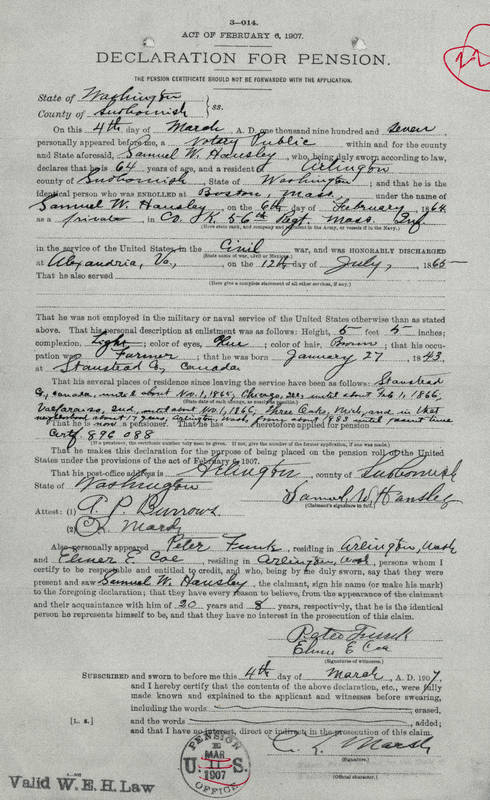 3—014.
ACT OF FEBRUARY 6, 1907.
22
DECLARATION FOR PENSION.
THE PENSION CERTIFICATE SHOULD NOT BE FORWARDED WITH THE APPLICATION.
State of Washington
County of Snohomish } ss.
On this 4th day of March, A. D. one thousand nine hundred and seven
personally appeared before me, a Notary Public within and for the county
and State aforesaid, Samuel W. Hansley, who, being duly sworn according to law,
declares that he is 64 years of age, and a resident of Arlington
county of Snohomish, State of Washington; and that he is the
identical person who was ENROLLED at Boston, Mass. under the name of
Samuel W. Hansley, on the 6th day of February, 1864,
as a private, in Co. K 56th Regt. Mass. Inf.
(Here state rank, and company and regiment in the Army, or vessels if in the Navy.)
in the service of the United States, in the Civil war, and was HONORABLY DISCHARGED
(State name of war, Civil or Mexican.)
at Alexandria, Va., on the 12th day of July, 1865
That he also served
(Here give a complete statement of all other services, if any.)
That he was not employed in the military or naval service of the United States otherwise than as stated
above. That his personal description at enlistment was as follows: Height, 5 feet 5 inches;
complexion, Light; color of eyes, Blue; color of hair, Brown; that his occu-
pation was Farmer; that he was born January 27, 1843,
at Stanstead Co, Canada
That his several places of residence since leaving the service have been as follows: Stanstead
Co, Canada, until about Nov. 1, 1865, Chicago, Ills until about Feb 1, 1866,
(State date of each change, as nearly as possible.)
Valparaiso, Ind. until about Nov. 1, 1866, Three Oaks, Mich, and in that
neighborhood about 17 years, Arlington, Wash, from about until present time
That he is now a pensioner. That he has heretofore applied for pension
Certf 896 088
(If a pensioner, the certificate number only need be given. If not, give the number of the former application, if one was made.)
That he makes this declaration for the purpose of being placed on the pension roll of the United
States under the provisions of the act of February 6, 1907.
That his post-office address is Arlington, county of Snohomish
State of Washington
Samuel W. Hansley
(Claimant's signature in full.)
Attest: (1) T. P. Burrows
(2) Mardy
Also personally appeared Peter Funk, residing in Arlington, Wash
and Elmer E. Coe, residing in Arlington, Wash, persons whom I
certify to be respectable and entitled to credit, and who, being by me duly sworn, say that they were
present and saw Samuel W. Hansley, the claimant, sign his name (or make his mark)
to the foregoing declaration; that they have every reason to believe, from the appearance of the claimant
and their acquaintance with him of 20 years and 8 years, respectively, that he is the identical
person he represents himself to be, and that they have no interest in the prosecution of this claim.
Peter Funk
Elmer E Coe
(Signatures of witnesses.)
SUBSCRIBED and sworn to before me this 4th day of March, A. D. 1907,
and I hereby certify that the contents of the above declaration, etc., were fully
made known and explained to the applicant and witnesses before swearing,
including the words erased,
[L. S.] and the words, added;
and that I have no interest, direct or indirect, in the prosecution of this claim.
L. Marsh
(Signature.)
(Official character.)
PENSION
MAR
11
U. S.
1907
OFFICE
Valid W. E. H. Law